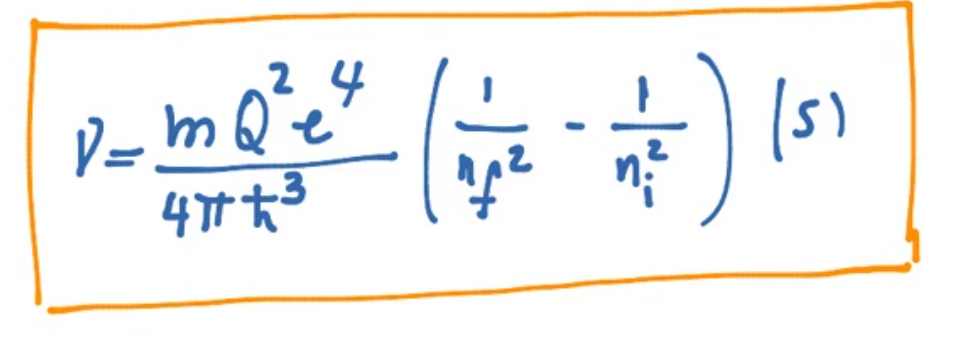 ν = mQ²e⁴/4πħ³ (1/n_f² - 1/n_i²) (5)